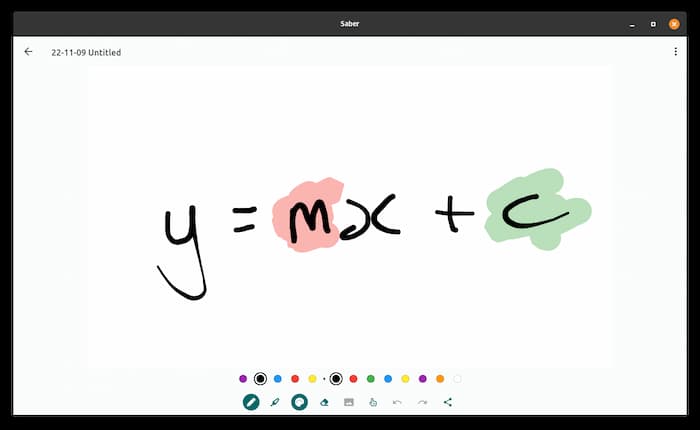 Saber
22-11-09 Untitled
y = mx + c